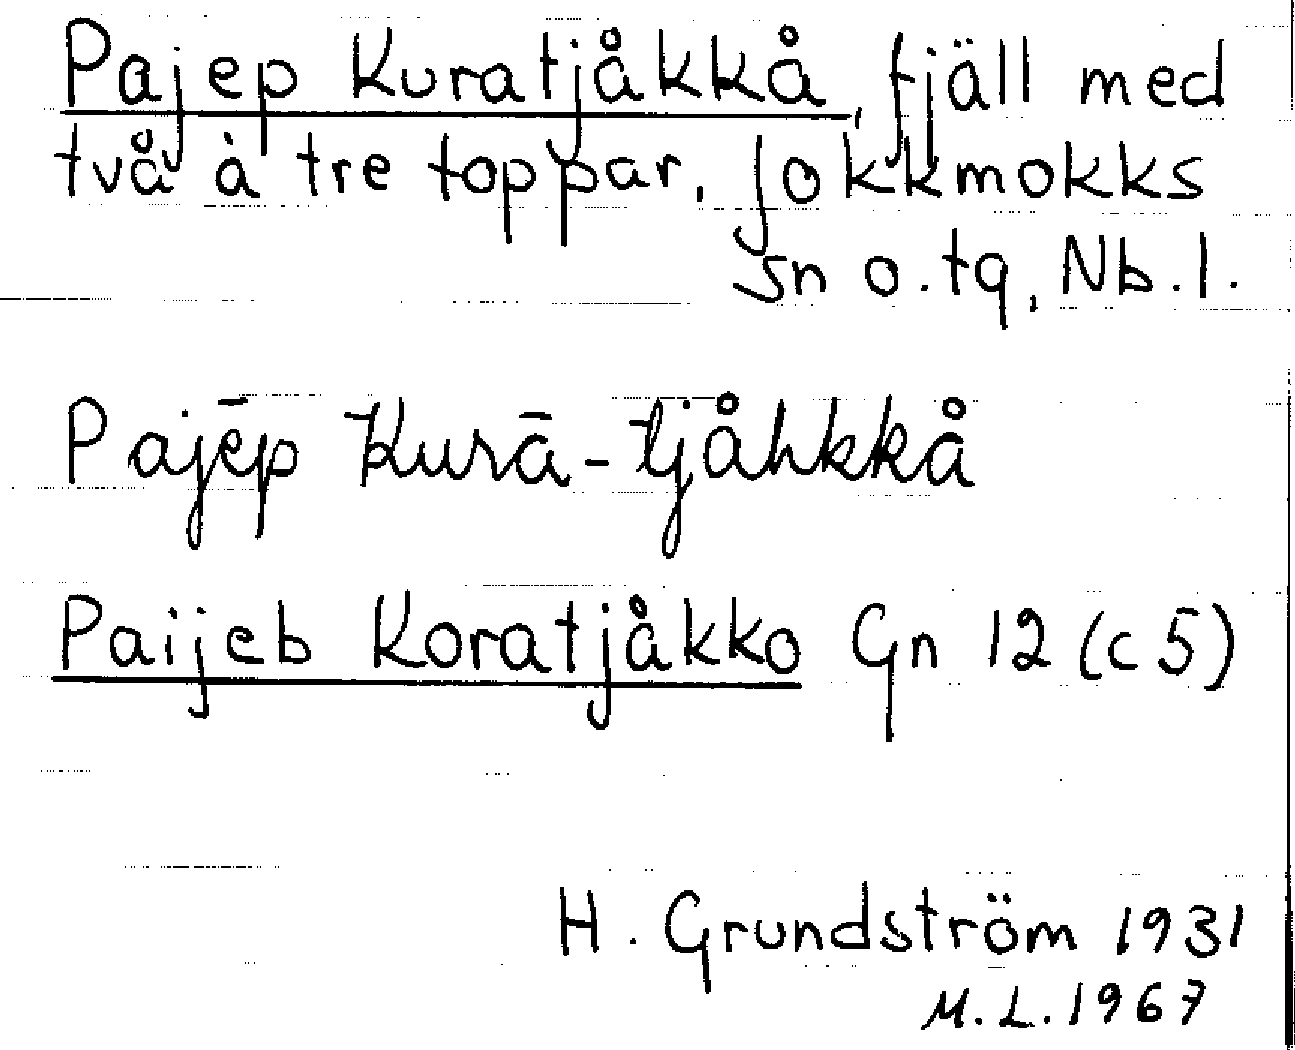 Pajep Kuratjåkkå, fjäll med
två à tre toppar, Jokkmokks
sn o. tg, Nb. l.
Pajēp Kurā-tjåhkkå
Paijeb Koratjåkko Gn 12 (c 5)
H. Grundström 1931
M. L. 1967